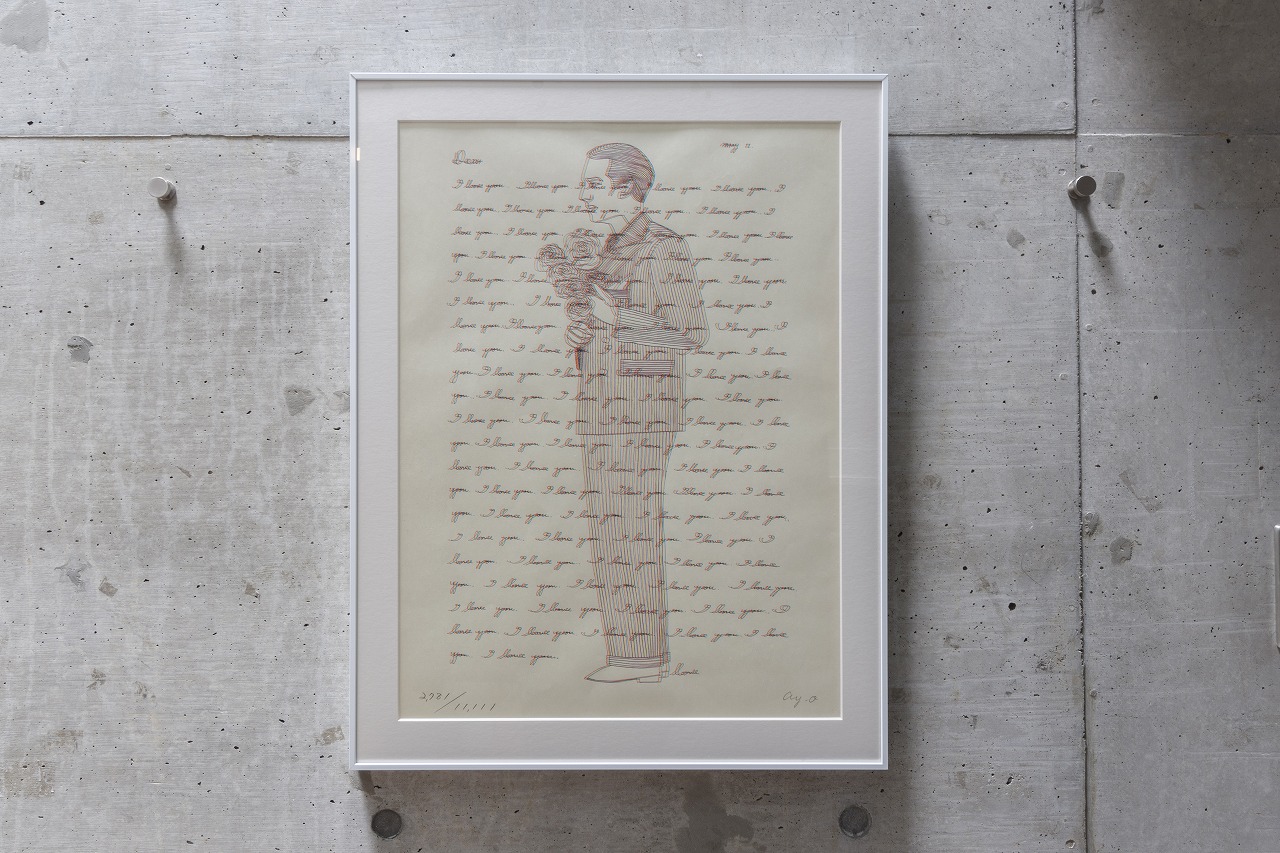 May 12
Dear
I love you. I love you. I love you. I love you. I love you. I
love you. I love you. I love you. I love you. I love you. I
love you. I love you. I love you. I love you. I love
you. I love you. I love you. I love you. I love you.
I love you. I love you. I love you. I love you.
I love you. I love you. I love you. I love you. I
love you. I love you. love you. I love you. I
love you. I love you. I love you. I love you. I love
you. I love you. I love you. I love you. I love you. I love
you. I love you. I love you. I love you. I love you.
I love you. I love you. I love you. I love you. I love
you. I love you. I love you. I love you. I love you. I
love you. I love you. I love you. I love you. I love
you. I love you. I love you. I love you. I love you. I love
you. I love you. I love you. I love you. I love you.
I love you. I love you. I love you. I love you. I
love you. I love you. I love you. I love you. I love
you. I love you. I love you. I love you. I love you.
I love you. I love you. I love you. I love you. I
love you. I love you. I love you. I love you. I love
you. I love you.
Love
2,721/11,111
ay-o